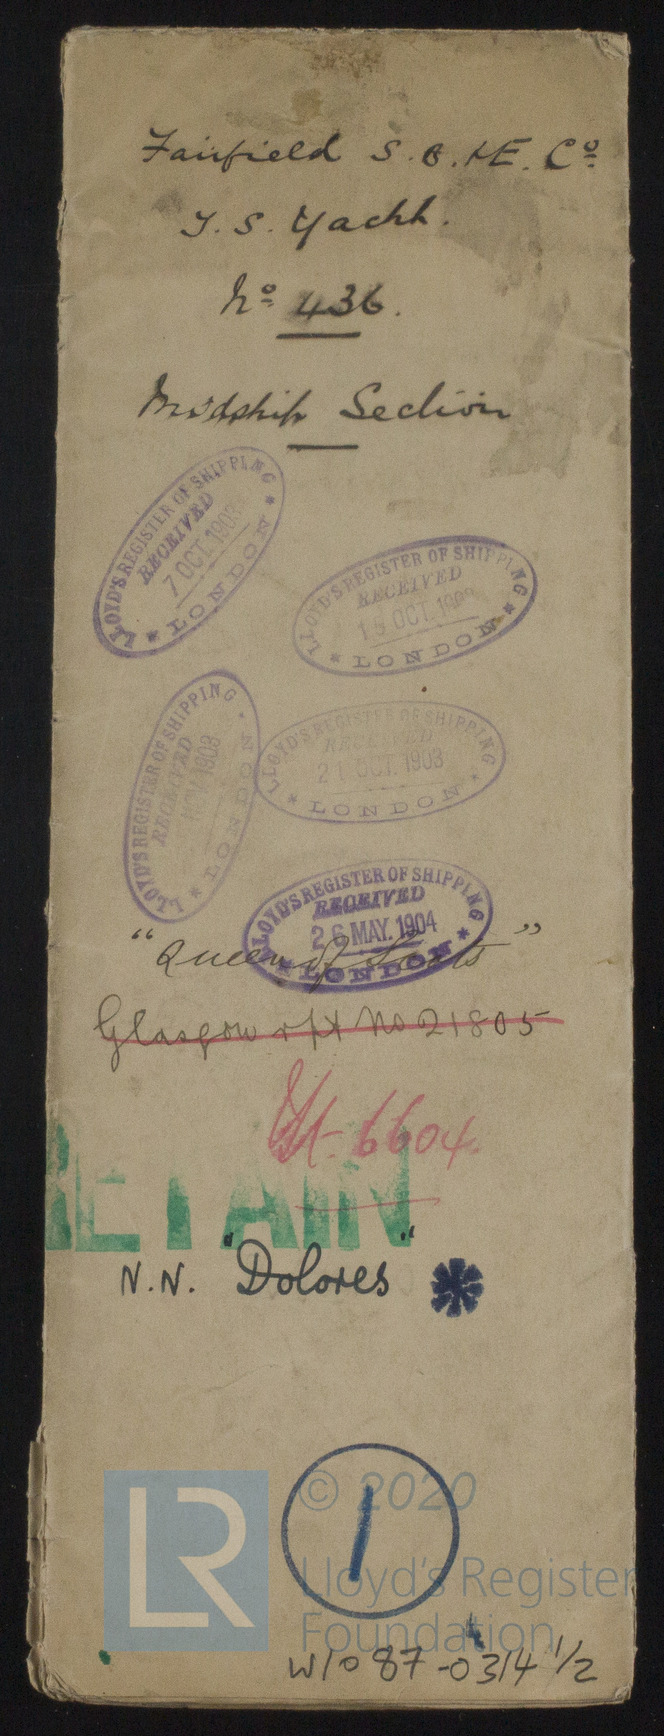 Fairfield S.B. & E. Co
T. S. Yacht.
No 436.
Midship Section
LLOYD'S REGISTER OF SHIPPING
RECEIVED
7 OCT. 1903
* LONDON *
LLOYD'S REGISTER OF SHIPPING
RECEIVED
15 OCT. 1903
* LONDON *
LLOYD'S REGISTER OF SHIPPING
RECEIVED
NOV 1903
* LONDON *
LLOYD'S REGISTER OF SHIPPING
RECEIVED
21 OCT. 1903
* LONDON *
LLOYD'S REGISTER OF SHIPPING
RECEIVED
26 MAY. 1904
* LONDON *
"Queen of Scots"
Glasgow rpt No 21805
6604.
RETAIN
N.N. "Dolores" *
1
LR
© 2020
Lloyd's Register
Foundation
W1087-0314 1/2